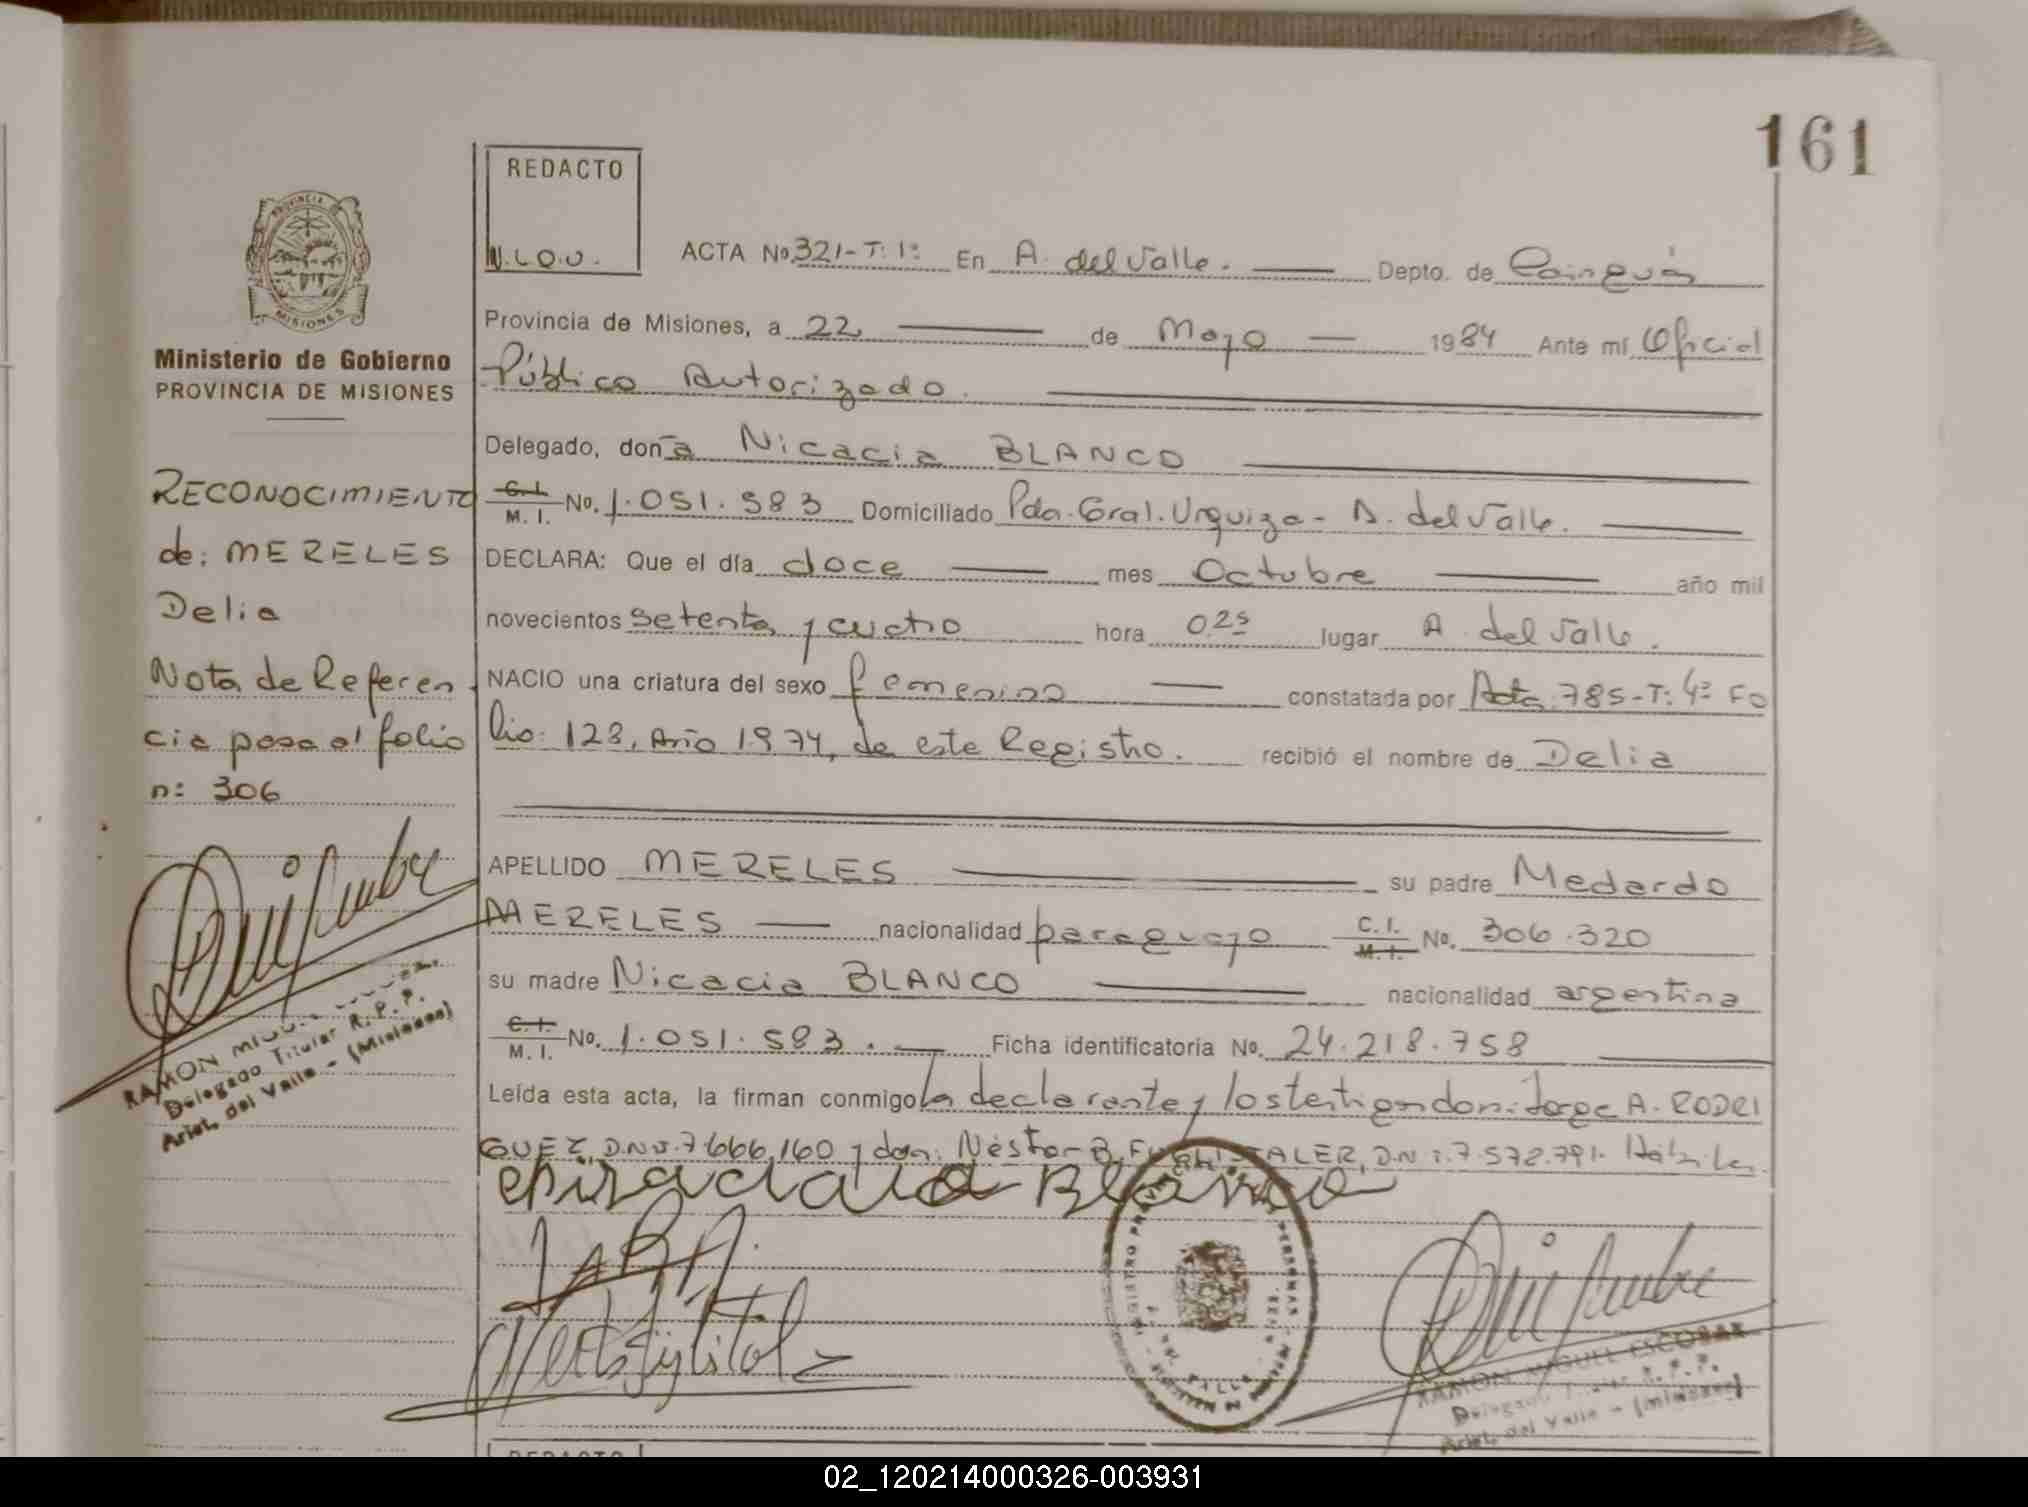 161
REDACTO
N.L.O.U.
ACTA No. 321-T: 1º En A. del Valle. Depto. de Cainguás
Provincia de Misiones, a 22 de Mayo 1984 Ante mí Oficial
Público Autorizado.
Delegado, doña Nicacia BLANCO
C. I. M. I. No. 1.051.583 Domiciliado Pda. Gral. Urquiza - A. del Valle.
DECLARA: Que el día doce mes Octubre año mil
novecientos setenta y cuatro hora 0.25 lugar A. del Valle.
NACIO una criatura del sexo femenino constatada por Acta: 785-T: 4º Fo
lio: 128, Año 1974, de este Registro. recibió el nombre de Delia
APELLIDO MERELES su padre Medardo
MERELES nacionalidad paraguayo C. I. M. I. No. 306.320
su madre Nicacia BLANCO nacionalidad argentina
C. I. M. I. No. 1.051.583. Ficha identificatoria No. 24.218.758
Leída esta acta, la firman conmigo la declarante y los testigos don: Jorge A. RODRI
GUEZ, D.N.I. 7.666.160 y don: Néstor B. D.N.I. 7.572.791. Hábiles.
Blanco
PROVINCIA
MISIONES
Ministerio de Gobierno
PROVINCIA DE MISIONES
RECONOCIMIENTO
de: MERELES
Delia
Nota de Referen
cia pasa al folio
n: 306
RAMON
Delegado Titular R. P. P.
Arist. del Valle - (Misiones)
RAMON MIGUEL ESCOBAR
Delegado Titular R. P. P.
Arist. del Valle - (Misiones)
REDACTO
02_120214000326-003931